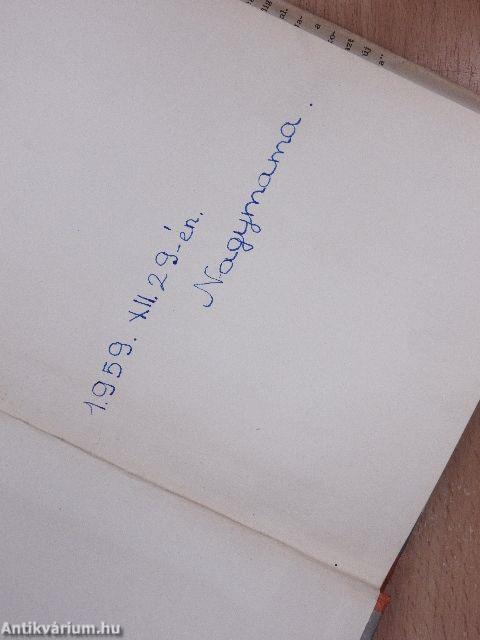 1959. XII. 29-én.
Nagymama.
Antikvárium.hu